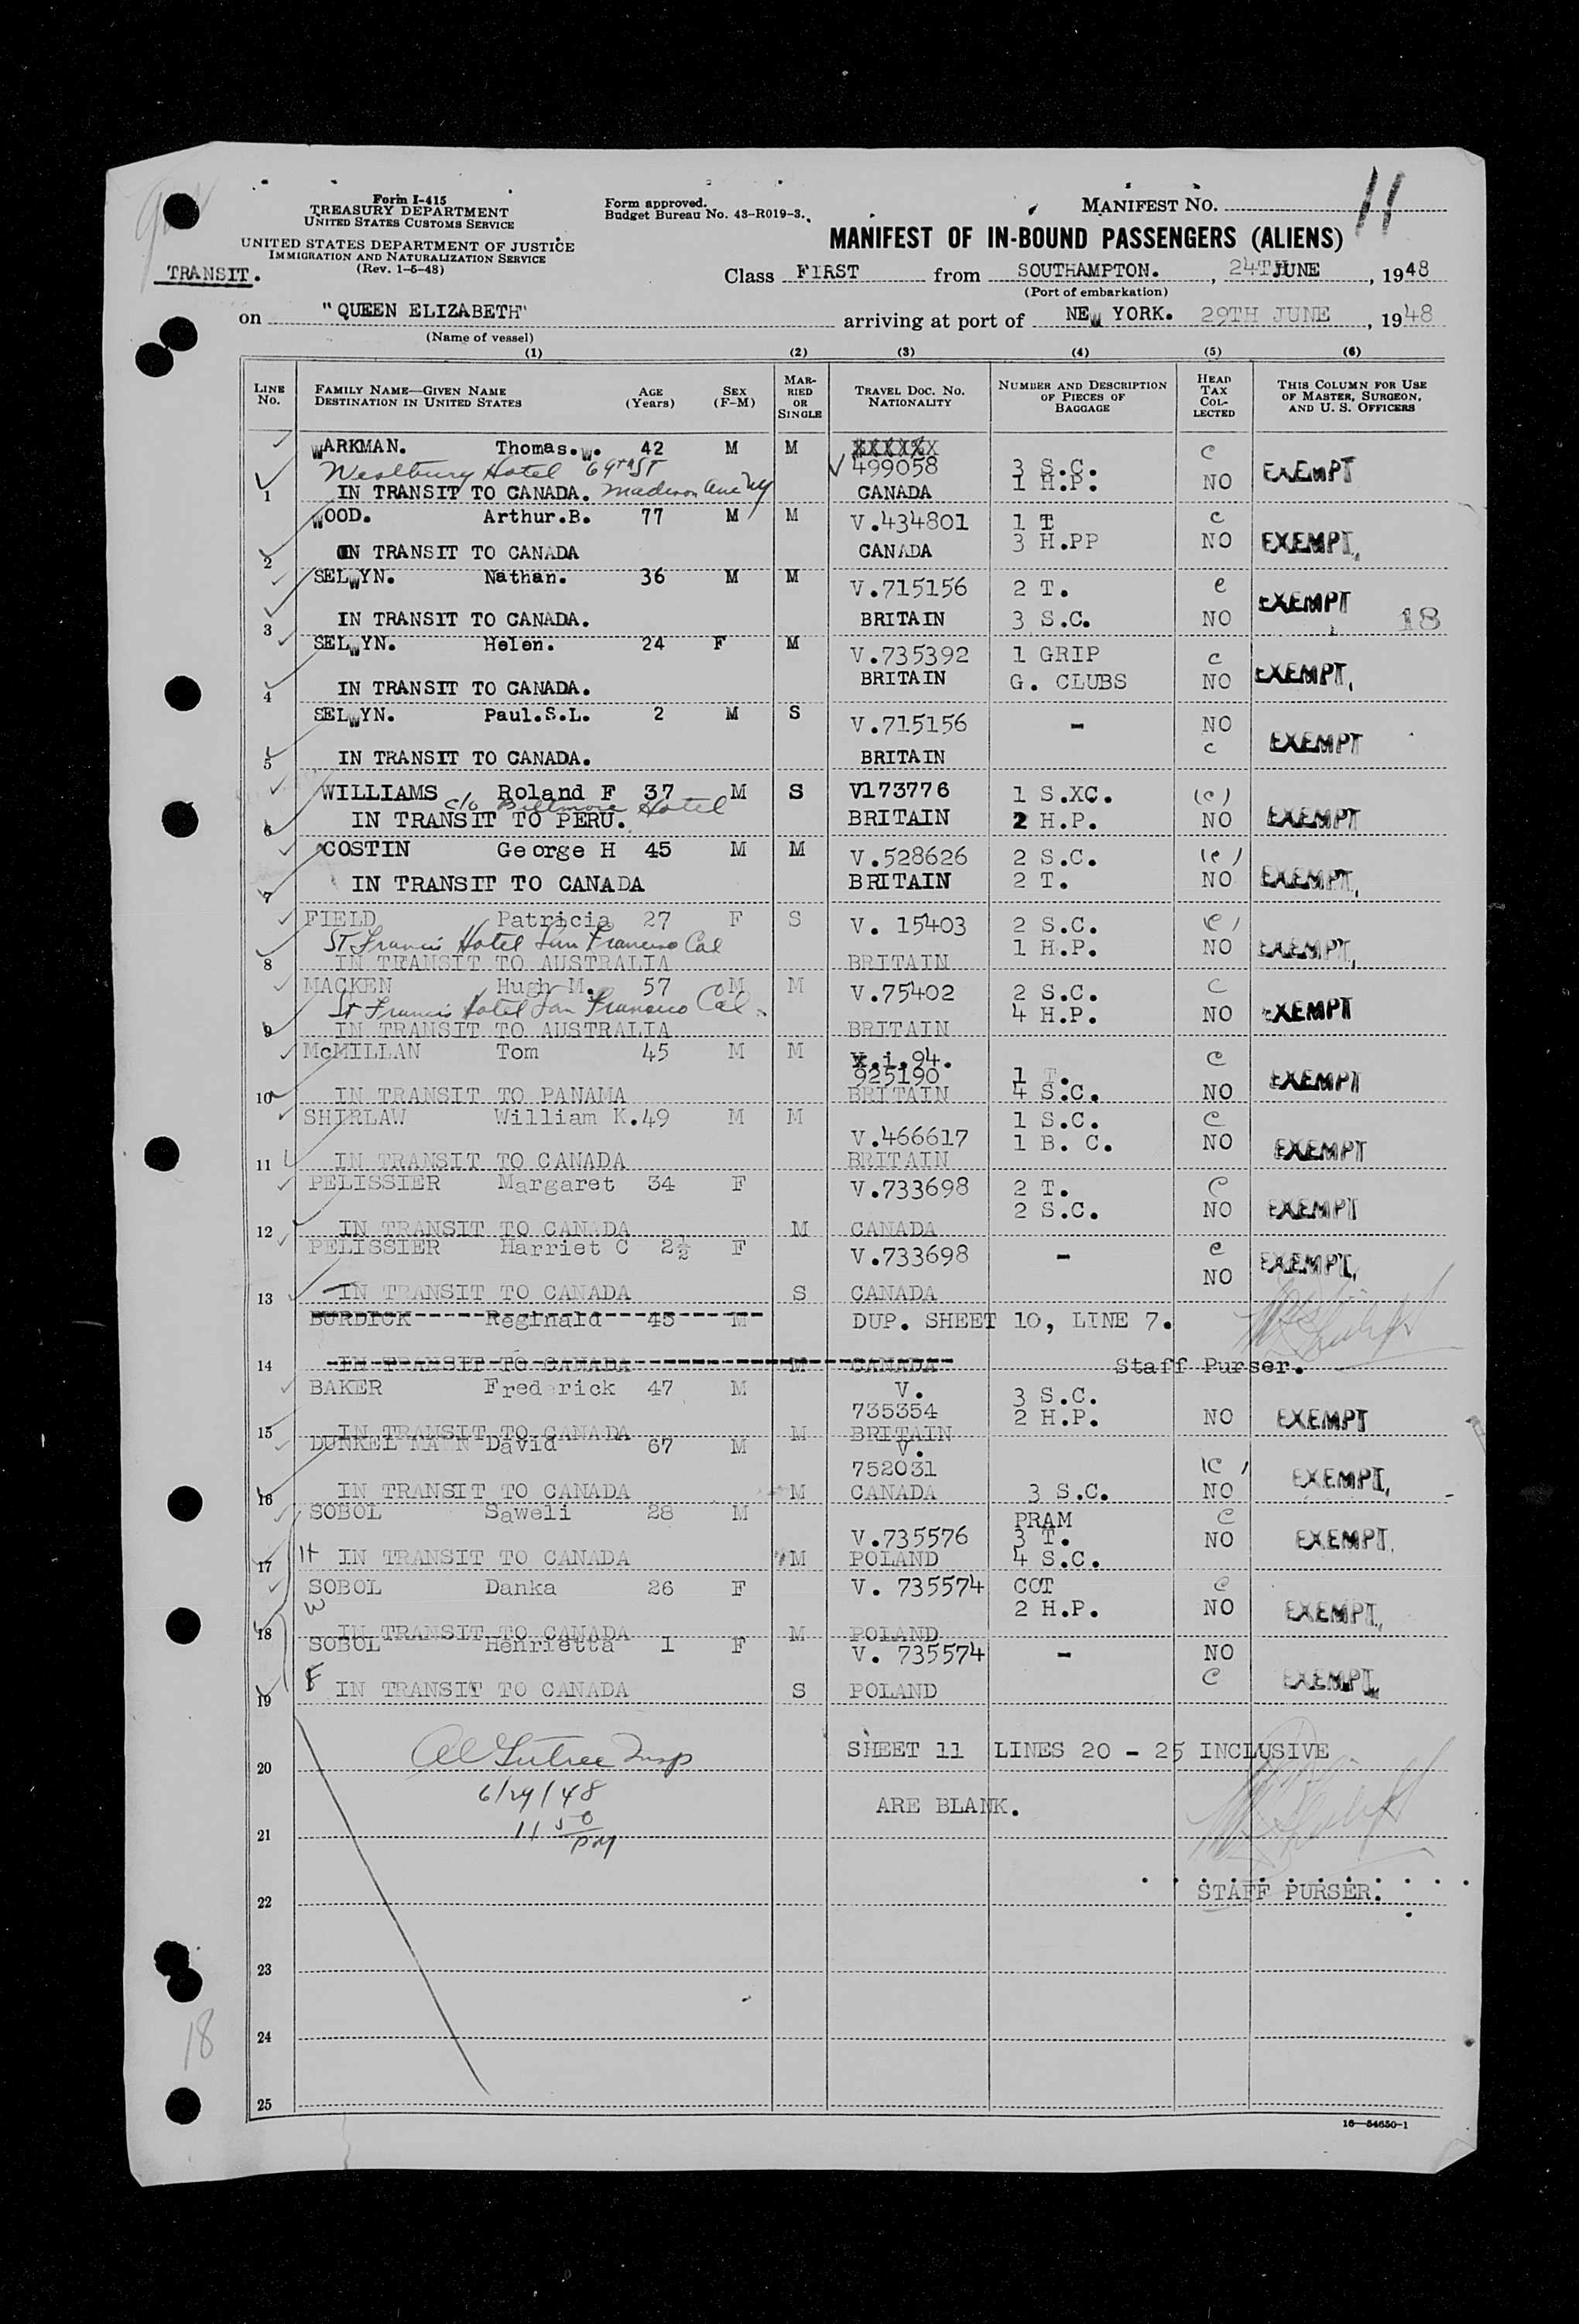 11
Form I-415
TREASURY DEPARTMENT
UNITED STATES CUSTOMS SERVICE
Form approved.
Budget Bureau No. 43-R019-3.
MANIFEST NO.
UNITED STATES DEPARTMENT OF JUSTICE
IMMIGRATION AND NATURALIZATION SERVICE
(Rev. 1-5-48)
MANIFEST OF IN-BOUND PASSENGERS (ALIENS)
TRANSIT.
Class FIRST from SOUTHAMPTON. , 24TH JUNE , 1948
(Port of embarkation)
on "QUEEN ELIZABETH" arriving at port of NEW YORK. 29TH JUNE , 1948
(Name of vessel)
(1) (2) (3) (4) (5) (6)
LINE NO. FAMILY NAME—GIVEN NAME DESTINATION IN UNITED STATES AGE (Years) SEX (F-M) MARRIED OR SINGLE TRAVEL DOC. NO. NATIONALITY NUMBER AND DESCRIPTION OF PIECES OF BAGGAGE HEAD TAX COLLECTED THIS COLUMN FOR USE OF MASTER, SURGEON, AND U. S. OFFICERS
WARKMAN. Thomas.W. 42 M M XXXXXX C
Westbury Hotel 69th St V 499058 3 S.C. EXEMPT
1 IN TRANSIT TO CANADA. Madison Ave NY CANADA 1 H.P. NO
WOOD. Arthur.B. 77 M M V.434801 1 T C
2 IN TRANSIT TO CANADA CANADA 3 H.PP NO EXEMPT
SELWYN. Nathan. 36 M M V.715156 2 T. C EXEMPT
3 IN TRANSIT TO CANADA. BRITAIN 3 S.C. NO 18
SELWYN. Helen. 24 F M V.735392 1 GRIP C
4 IN TRANSIT TO CANADA. BRITAIN G. CLUBS NO EXEMPT
SELWYN. Paul.S.L. 2 M S V.715156 - NO
5 IN TRANSIT TO CANADA. BRITAIN C EXEMPT
WILLIAMS Roland F 37 M S V173776 1 S.XC. (C)
c/o Biltmore Hotel
6 IN TRANSIT TO PERU. BRITAIN 2 H.P. NO EXEMPT
COSTIN George H 45 M M V.528626 2 S.C. (C)
7 IN TRANSIT TO CANADA BRITAIN 2 T. NO EXEMPT
FIELD Patricia 27 F S V. 15403 2 S.C. C
St Francis Hotel San Francisco Cal 1 H.P. NO EXEMPT
8 IN TRANSIT TO AUSTRALIA BRITAIN
MACKEN Hugh M. 57 M M V.75402 2 S.C. C
St Francis Hotel San Francisco Cal. 4 H.P. NO EXEMPT
9 IN TRANSIT TO AUSTRALIA BRITAIN
McMILLAN Tom 45 M M X.i.94. C
925190 1 T. EXEMPT
10 IN TRANSIT TO PANAMA BRITAIN 4 S.C. NO
SHIRLAW William K. 49 M M 1 S.C. C
V.466617 1 B. C. NO EXEMPT
11 IN TRANSIT TO CANADA BRITAIN
PELISSIER Margaret 34 F V.733698 2 T. C
2 S.C. NO EXEMPT
12 IN TRANSIT TO CANADA M CANADA
PELISSIER Harriet C 2½ F V.733698 - C
NO EXEMPT
13 IN TRANSIT TO CANADA S CANADA
BURDICK Reginald 45 M DUP. SHEET 10, LINE 7.
14 IN TRANSIT TO CANADA M CANADA Staff Purser.
BAKER Frederick 47 M V. 3 S.C.
735354 2 H.P. NO EXEMPT
15 IN TRANSIT TO CANADA M BRITAIN
DUNKELMANN David 67 M V.
752031 (C) EXEMPT
16 IN TRANSIT TO CANADA M CANADA 3 S.C. NO
SOBOL Saweli 28 M PRAM C
V.735576 3 T. NO EXEMPT
17 H IN TRANSIT TO CANADA M POLAND 4 S.C.
SOBOL Danka 26 F V. 735574 COT C
W 2 H.P. NO EXEMPT
18 IN TRANSIT TO CANADA M POLAND
SOBOL Henrietta 1 F V. 735574 - NO
19 F IN TRANSIT TO CANADA S POLAND C EXEMPT
SHEET 11 LINES 20 - 25 INCLUSIVE
20
6/29/48 ARE BLANK.
21 11 50 PM
22 STAFF PURSER.
23
24
18
25
16—54650-1